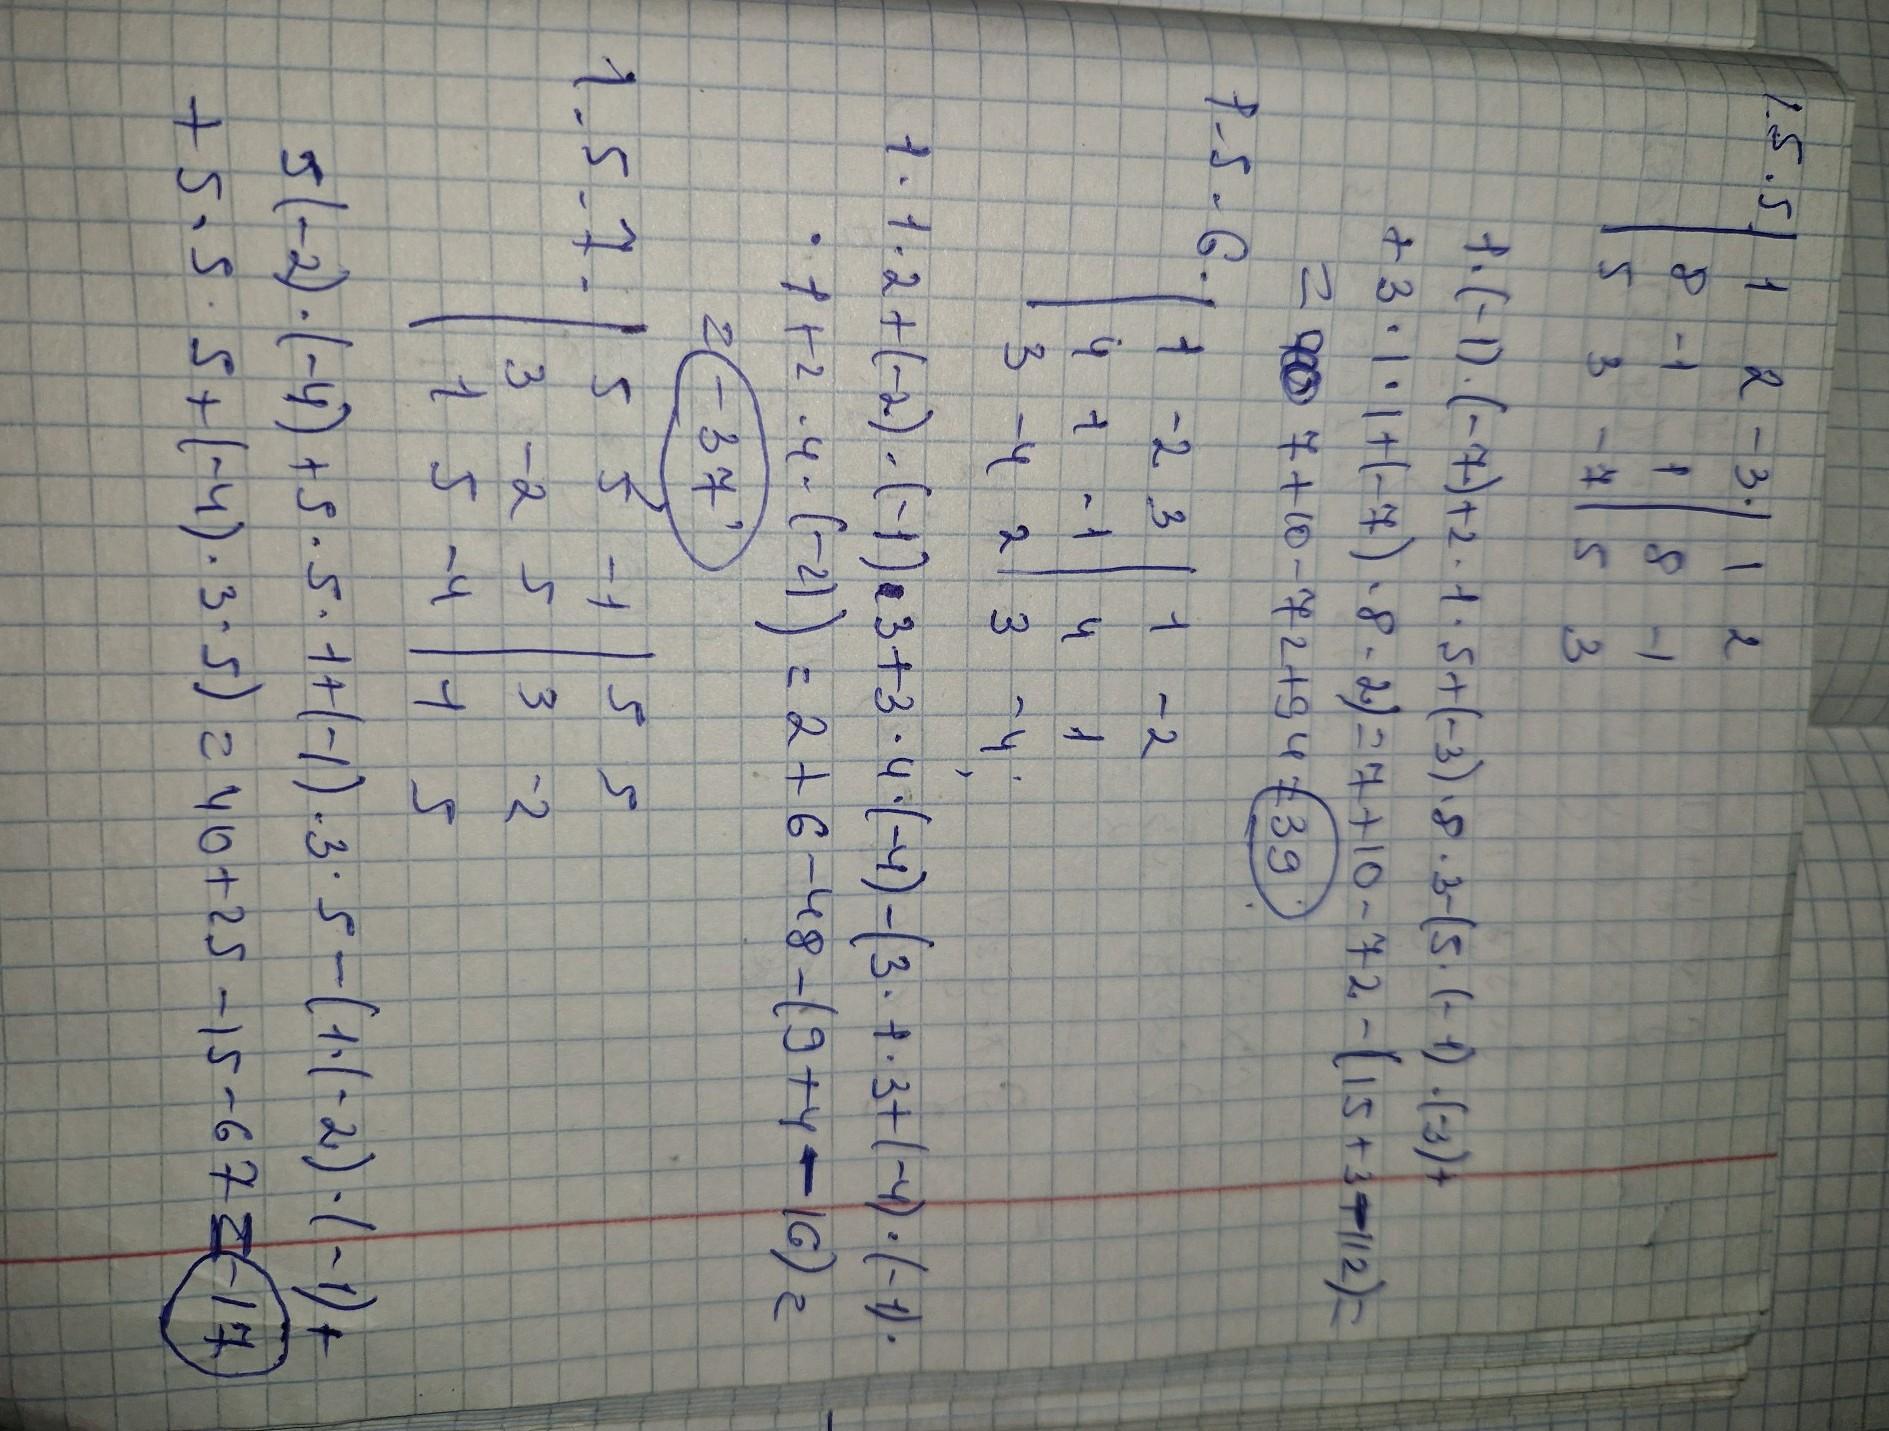 1.5.5 | 1 2 -3. | 1 2
8 -1 1 | 8 -1
5 3 -7 | 5 3
1·(-1)·(-7)+2·1·5+(-3)·8·3-(5·(-1)·(-3)+
+3·1·1+(-7)·8·2)=7+10-72-(15+3-112)=
= 7+10-72+94=39
1.5.6. | 1 -2 3 | 1 -2
4 1 -1 | 4 1
3 -4 2 | 3 -4
1·1·2+(-2)·(-1)·3+3·4·(-4)-(3·1·3+(-4)·(-1)·
·1+2·4·(-2))=2+6-48-(9+4-16)=
= -37
1.5.7. | 5 5 -1 | 5 5
3 -2 5 | 3 -2
1 5 -4 | 1 5
5(-2)·(-4)+5·5·1+(-1)·3·5-(1·(-2)·(-1)+
+5·5·5+(-4)·3·5)=40+25-15-67=-17